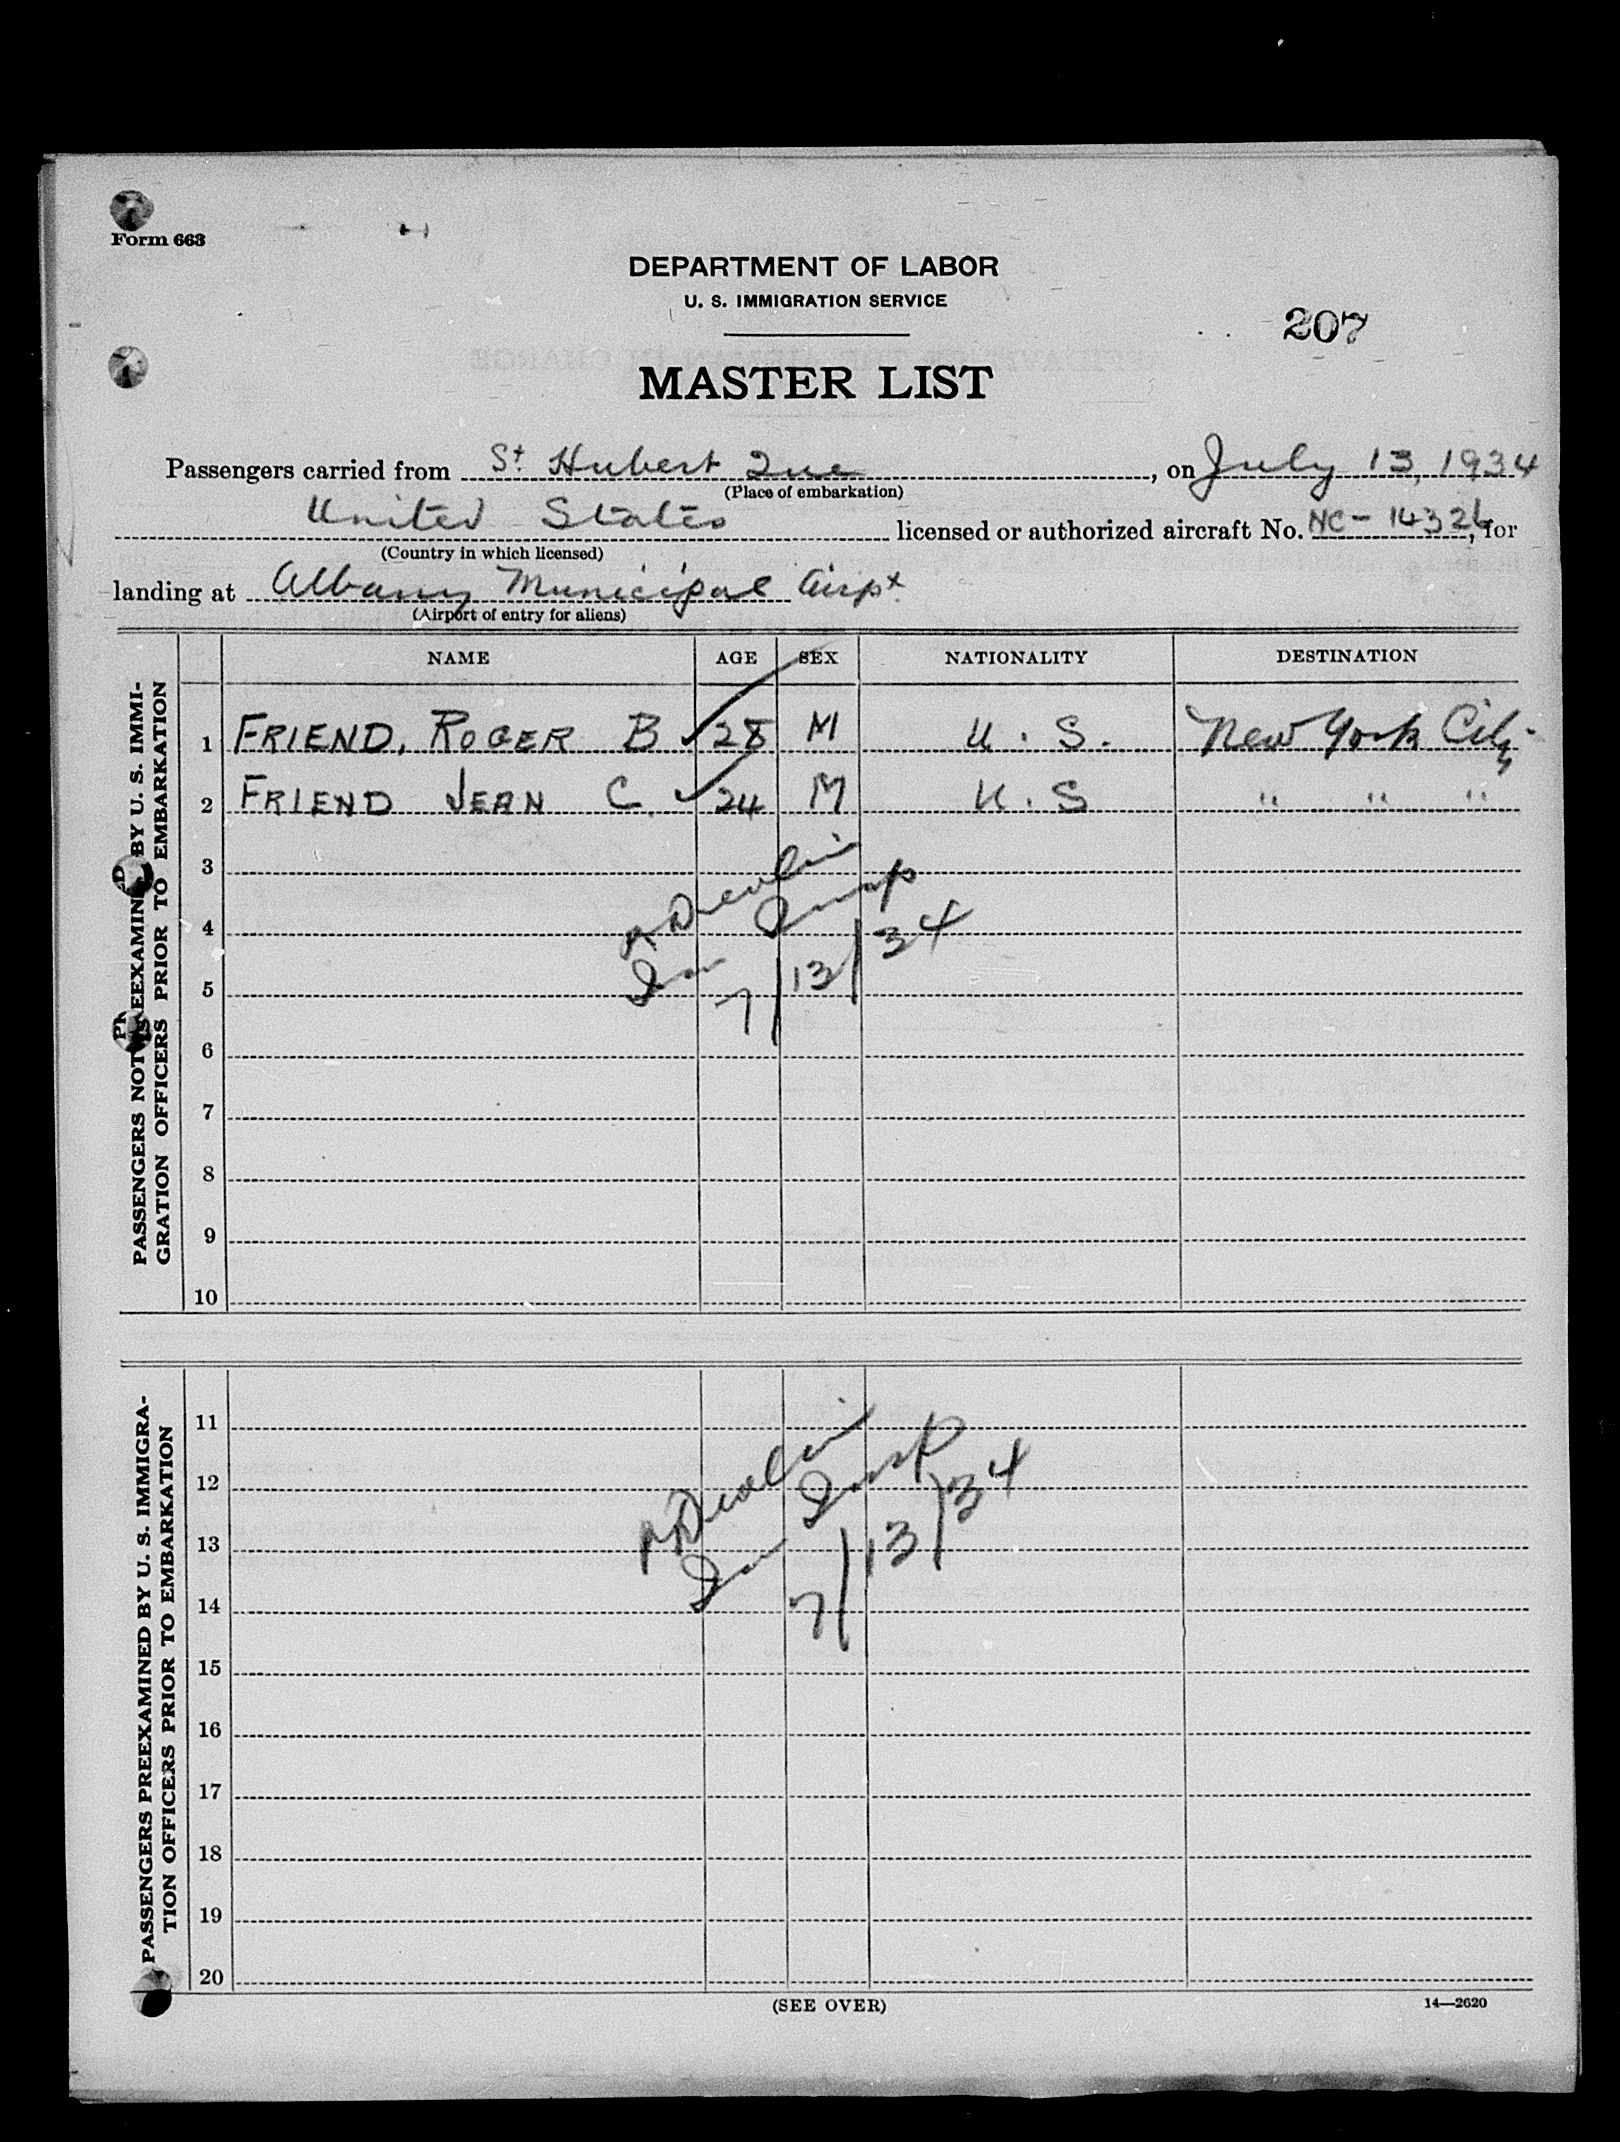 Form 663
DEPARTMENT OF LABOR
U. S. IMMIGRATION SERVICE
207
MASTER LIST
Passengers carried from St. Hubert Que, on July 13, 1934
(Place of embarkation)
United States licensed or authorized aircraft No. NC-14326, for
(Country in which licensed)
landing at Albany Municipal Airpt
(Airport of entry for aliens)
NAME AGE SEX NATIONALITY DESTINATION
PASSENGERS NOT PREEXAMINED BY U. S. IMMI-
GRATION OFFICERS PRIOR TO EMBARKATION
1 FRIEND, ROGER B ✓ 28 M U. S. New York City
2 FRIEND JEAN C ✓ 24 M U. S " " "
3
4
5
6
7
8
9
10
Devlin
Im Insp
7/13/34
PASSENGERS PREEXAMINED BY U. S. IMMIGRA-
TION OFFICERS PRIOR TO EMBARKATION
11
12
13
14
15
16
17
18
19
20
Devlin
Im Insp
7/13/34
(SEE OVER)
14—2620